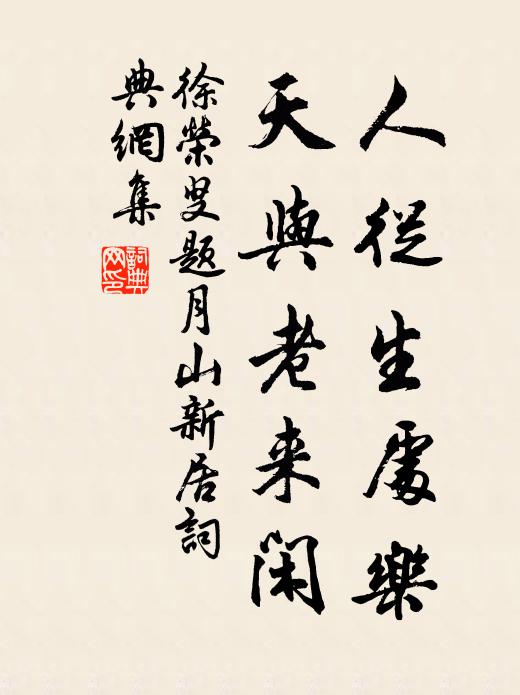 人從生處樂
天與老来閑
徐榮叟題月山新居詞
典網集
詞典網印